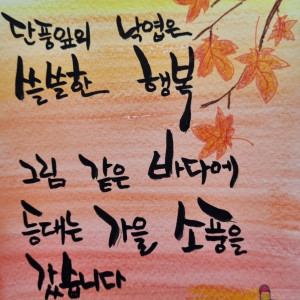 단풍잎의 낙엽은
쓸쓸한 행복
그림 같은 바다에
등대는 가을 소풍을
갔습니다